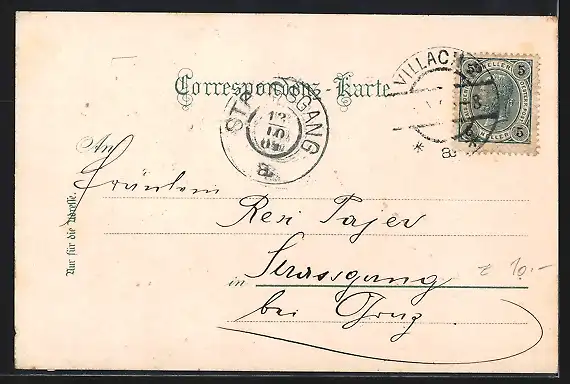 Correspondenz-Karte
VILLACH
8
* a
5 HELLER 5
5 HELLER 5
STRASSGANG
12
10
a
An
Fräulein
Resi Pajer
in Strassgang
bei Graz
10.-
Nur für die Adresse.